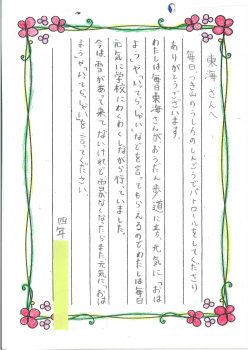 東海さんへ
毎日つき山のうしろのしんごうでパトロールをしてくださり
ありがとうございます。
わたしは毎日東海さんがおうだん歩道に立ち、元気に「おは
よう」や「いってらっしゃい」などを言ってもらえるのでわたしは毎日
元気に学校にわくわくしながら行っていました。
今は雪があって来てないけれど雪がなくなったらまた元気に、「おは
よう」や「いってらっしゃい」を言ってください。
四年